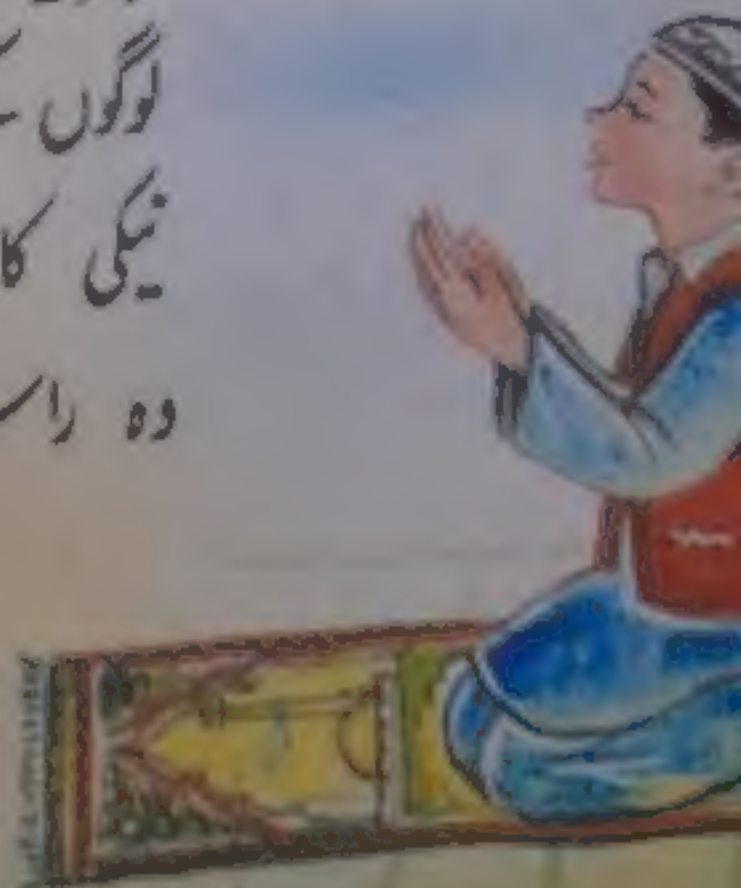 لوگوں
نیکی کا
وہ